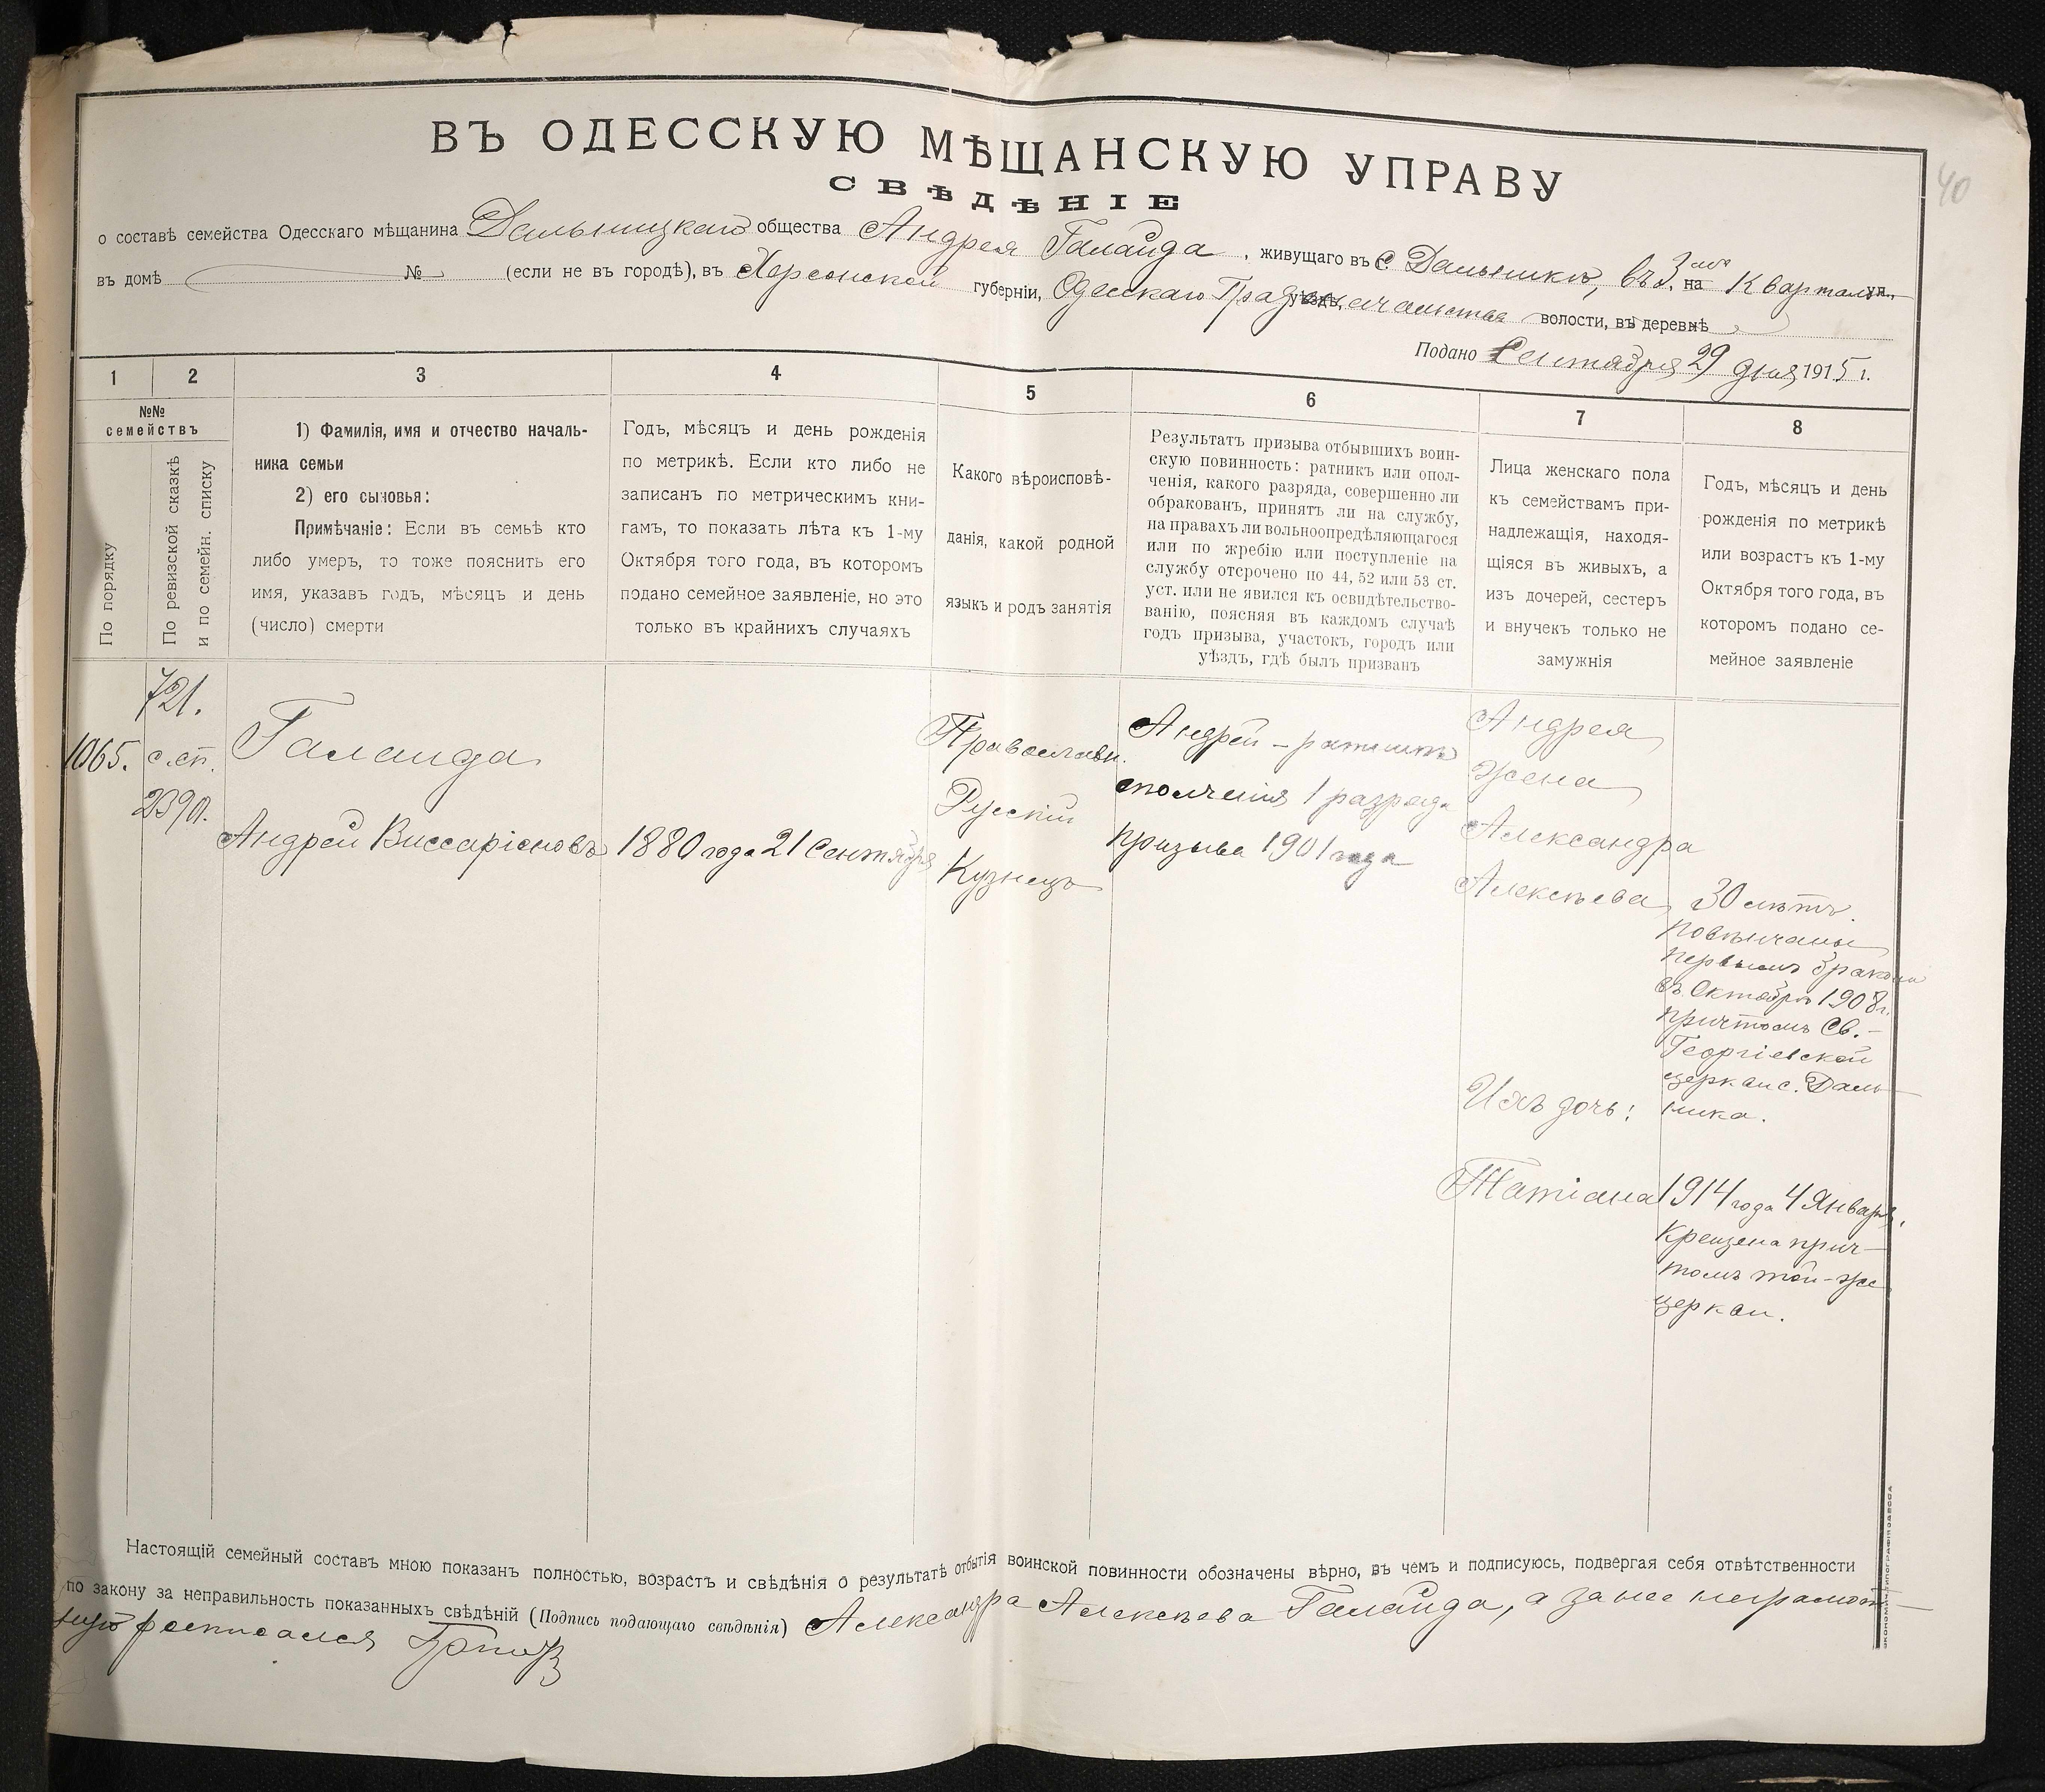 40
ВЪ ОДЕССКУЮ МѢЩАНСКУЮ УПРАВУ
СВѢДѢНІЕ
о составѣ семейства Одесскаго мѣщанина Дальницкаго общества Андрея Галайда, живущаго въ с. Дальникѣ, въ 3мъ на Кварталѣ ул.,
въ домѣ № (если не въ городѣ), въ Херсонской губерніи, Одесскаго Градоначальства уѣздѣ, волости, въ деревнѣ
Подано Сентября 29 дня 1915 г.
1 2 3 4 5 6 7 8
№№
семействъ
По порядку
По ревизской сказкѣ
и по семейн. списку
1) Фамилія, имя и отчество началь-
ника семьи
2) его сыновья:
Примѣчаніе: Если въ семьѣ кто
либо умеръ, то тоже пояснить его
имя, указавъ годъ, мѣсяцъ и день
(число) смерти
Годъ, мѣсяцъ и день рожденія
по метрикѣ. Если кто либо не
записанъ по метрическимъ кни-
гамъ, то показать лѣта къ 1-му
Октября того года, въ которомъ
подано семейное заявленіе, но это
только въ крайнихъ случаяхъ
Какого вѣроисповѣ-
данія, какой родной
языкъ и родъ занятія
Результатъ призыва отбывшихъ воин-
скую повинность: ратникъ или опол-
ченія, какого разряда, совершенно ли
обракованъ, принятъ ли на службу,
на правахъ ли вольноопредѣляющагося
или по жребію или поступленіе на
службу отсрочено по 44, 52 или 53 ст.
уст. или не явился къ освидѣтельство-
ванію, поясняя въ каждомъ случаѣ
годъ призыва, участокъ, городъ или
уѣздъ, гдѣ былъ призванъ
Лица женскаго пола
къ семействамъ при-
надлежащія, находя-
щіяся въ живыхъ, а
изъ дочерей, сестеръ
и внучекъ только не
замужнія
Годъ, мѣсяцъ и день
рожденія по метрикѣ
или возрастъ къ 1-му
Октября того года, въ
которомъ подано се-
мейное заявленіе
1065.
721.
с.сп.
2390.
Галайда
Андрей Виссаріоновъ
1880 года 21 Сентября
Православн.
Русскій
Кузнецъ
Андрей – ратникъ
ополченія 1 разряда
призыва 1901 года
Андрея
жена
Александра
Алексѣева
30 лѣтъ.
Повѣнчаны
первымъ бракомъ
въ Октябрѣ 1908 г.
причтомъ Св.-
Георгіевской
церкви с. Даль-
ника.
Ихъ дочь:
Татіана
1914 года 4 Января.
Крещена прич-
томъ той-же
церкви.
Настоящій семейный составъ мною показанъ полностью, возрастъ и свѣдѣнія о результатѣ отбытія воинской повинности обозначены вѣрно, въ чемъ и подписуюсь, подвергая себя отвѣтственности
по закону за неправильность показанныхъ свѣдѣній (Подпись подающаго свѣдѣнія) Александра Алексѣева Галайда, а за нее неграмот-
ную росписался
ЭКОНОМИЧ. ТИПОГРАФІЯ ОДЕССА